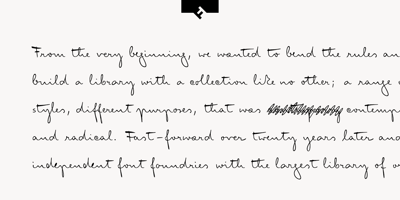 From the very beginning, we wanted to bend the rules an
build a library with a collection like no other; a range
styles, different purposes, that was contemp
and radical. Fast-forward over twenty years later and
independent font foundries with the largest library of